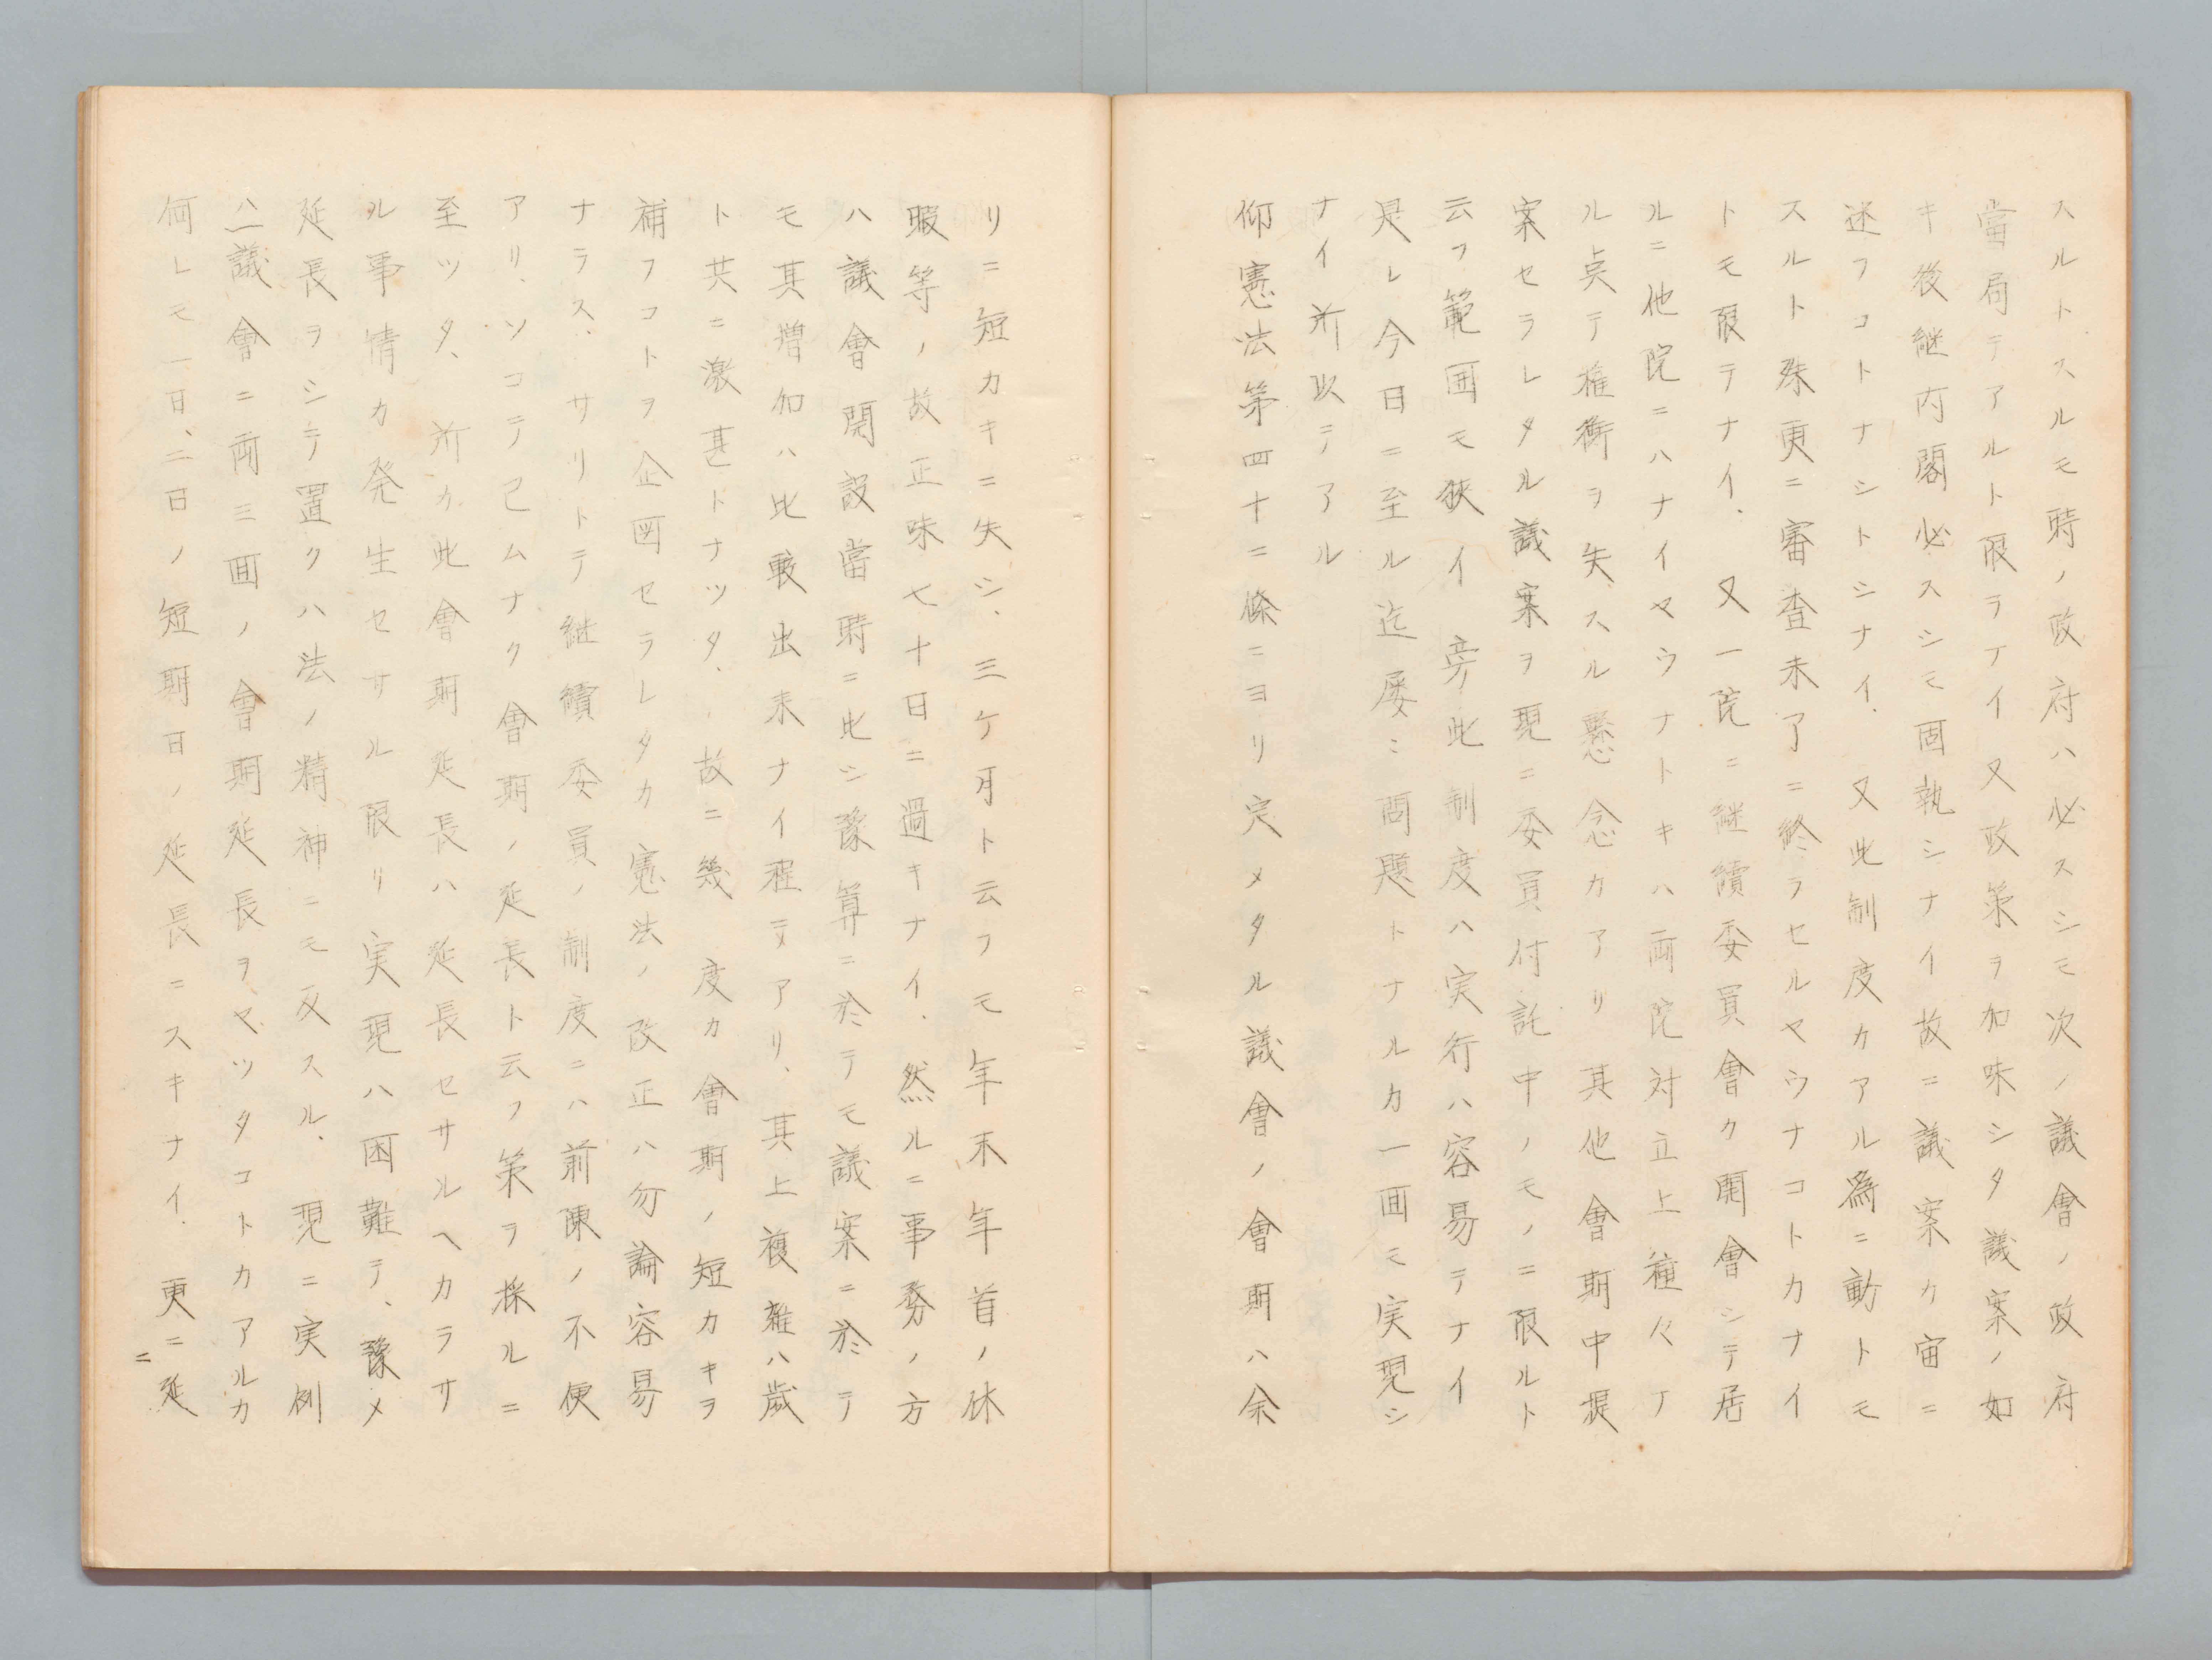 スルトスルモ時ノ政府ハ必スシモ次ノ議會ノ政府
當局テアルト限ラナイ又政策ヲ加味シタ議案ノ如
キ後継内閣必スシモ固執シナイ故ニ議案カ宙ニ
迷フコトナシトシナイ. 又此制度カアル爲ニ動トモ
スルト殊更ニ審査未了ニ終ラセルヤウナコトカナイ
トモ限テナイ. 又一院ニ継續委員會ク開會シテ居
ルニ他院ニハナイヤウナトキハ両院対立上種々ナ
ル点テ権衡ヲ失スル懸念カアリ 其他會期中提
案セラレタル議案ヲ現ニ委員付託中ノモノニ限ルト
云フ範囲モ狭イ 旁此制度ハ実行ハ容易テナイ
是レ今日ニ至ル迄屡ミ問題トナルカ一画モ実現シ
ナイ所以テアル
仰憲法第四十二條ニヨリ定メタル議會ノ會期ハ余
リニ短カキニ失シ、三ケ月ト云フモ年末年首ノ休
暇等ノ故正味七十日ニ過キナイ. 然ルニ事務ノ方
ハ議會開設當時ニ比シ豫算ニ於テモ議案ニ於テ
モ其増加ハ比較出来ナイ程テアリ、其上複雑ハ歳
ト共ニ激甚トナツタ. 故ニ幾度カ會期ノ短カキヲ
補フコトヲ企図セラレタカ憲法ノ改正ハ勿論容易
ナラス、サリトテ継續委員ノ制度ニハ前陳ノ不便
アリ、ソコテ已ムナク會期ノ延長ト云フ策ヲ採ルニ
至ツタ、所カ此會期延長ハ延長セサルヘカラサ
ル事情カ発生セサル限リ実現ハ困難テ、豫メ
延長ヲシテ置クハ法ノ精神ニモ反スル. 現ニ実例
ハ一議會ニ両三回ノ會期延長ヲヤツタコトカアルカ
何レモ一日、二日ノ短期日ノ延長ニスキナイ. 更ニ延
ニ